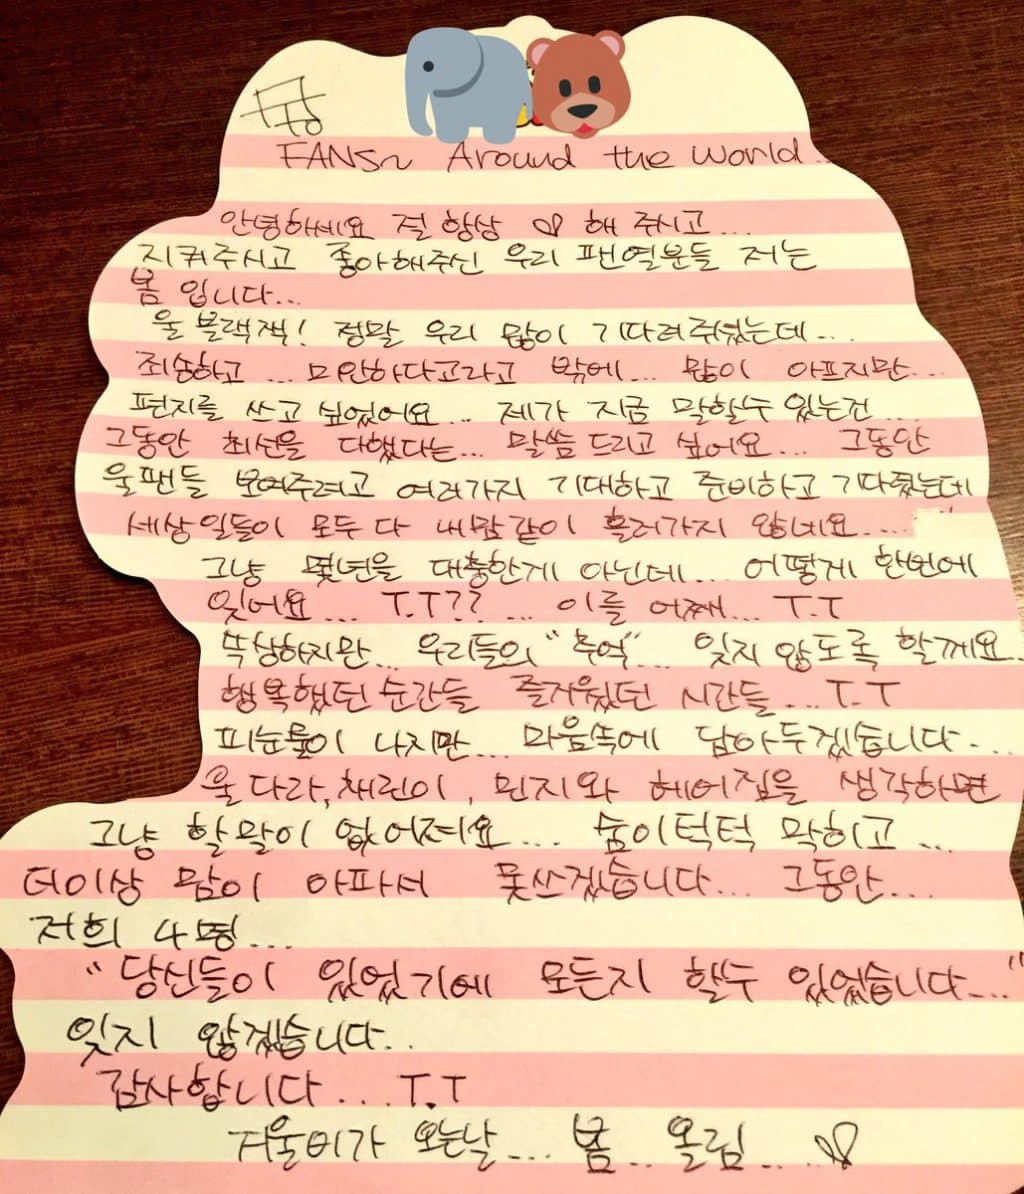 FANS~ Around the World..
안녕하세요 절 항상 ♡ 해 주시고...
지켜주시고 좋아해주신 우리 팬열분들 저는
봄 입니다...
울 블랙잭! 정말 우리 많이 기다려줘었는데...
죄송하고 ... 미안하다고라고 밖에... 맘이 아프지만...
편지를 쓰고 싶었어요... 제가 지금 말할수 있는건...
그동안 최선을 다했다는... 말씀 드리고 싶어요... 그동안
울팬들 보여주려고 여러가지 기대하고 준비하고 기다렸는데
세상일들이 모두 다 내맘같이 흘러가지 않네요....
그냥 몇년을 대충한게 아닌데... 어떻게 한번에
잊어요... T.T?? ... 이를 어째... T.T
뚝상하지만... 우리들의 "추억"... 잊지 않도록 할께요.
행복했던 순간들 즐거웠던 시간들... T.T
피눈물이 나지만... 마음속에 담아두겠습니다...
울 다라, 채린이, 민지와 헤어짐을 생각하면
그냥 할말이 없어져요... 숨이턱턱 막히고 ...
더이상 맘이 아파서 못쓰겠습니다... 그동안...
저희 4명...
"당신들이 있었기에 모든지 할수 있었습니다...."
잊지 않겠습니다..
감사합니다... T.T
겨울비가 오는날... 봄.. 올림... ♡